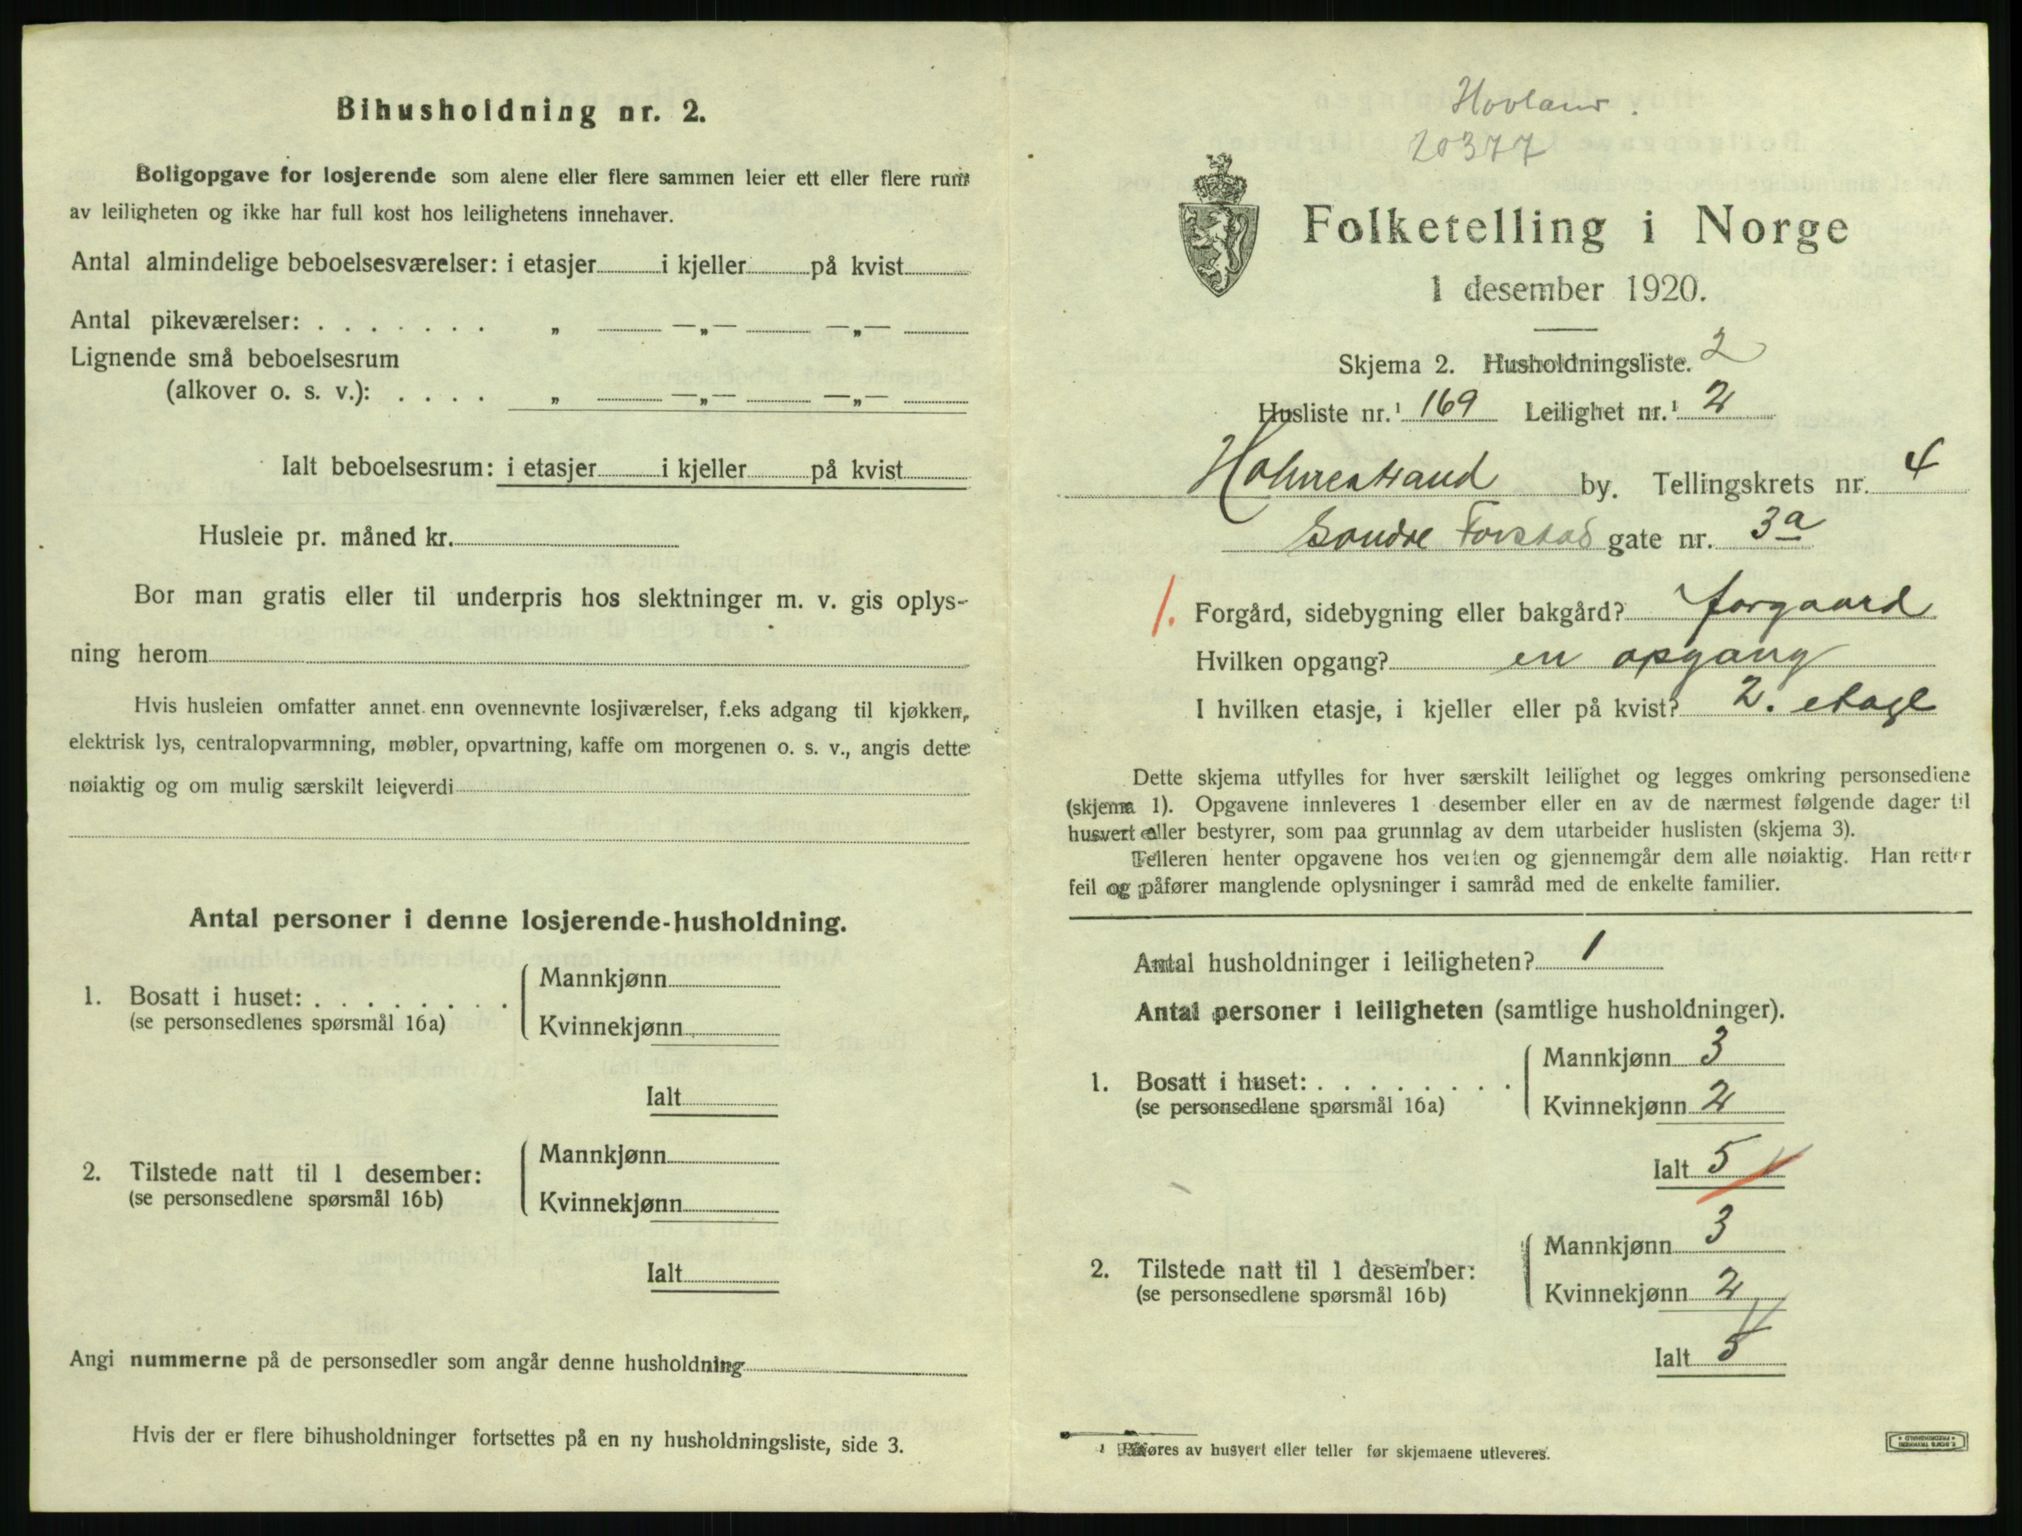 Bihusholdning nr. 2.
Boligopgave for losjerende som alene eller flere sammen leier ett eller flere rum
av leiligheten og ikke har full kost hos leilighetens innehaver.
Antal almindelige beboelsesværelser: i etasjer i kjeller på kvist
Antal pikeværelser: . . . . . . . „ —„— —„—
Lignende små beboelsesrum
(alkover o. s. v.): . . . . „ —„— —„—
Ialt beboelsesrum: i etasjer i kjeller på kvist
Husleie pr. måned kr.
Bor man gratis eller til underpris hos slektninger m. v. gis oplys-
ning herom
Hvis husleien omfatter annet enn ovennevnte losjiværelser, f.eks adgang til kjøkken,
elektrisk lys, centralopvarmning, møbler, opvartning, kaffe om morgenen o. s. v., angis dette
nøiaktig og om mulig særskilt leieverdi
Antal personer i denne losjerende-husholdning.
1. Bosatt i huset: . . . . . . . .
(se personsedlenes spørsmål 16a)
Mannkjønn
Kvinnekjønn
Ialt
2. Tilstede natt til 1 desember:
(se personsedlene spørsmål 16b)
Mannkjønn
Kvinnekjønn
Ialt
Angi nummerne på de personsedler som angår denne husholdning
Hvis der er flere bihusholdninger fortsettes på en ny husholdningsliste, side 3.
20377
Folketelling i Norge
1 desember 1920.
Skjema 2. Husholdningsliste. 2
Husliste nr.¹ 169 Leilighet nr.¹ 2
Holmestrand by. Tellingskrets nr. 4
Søndre Forstad gate nr. 3a
1. Forgård, sidebygning eller bakgård? forgaard
Hvilken opgang? en opgang
I hvilken etasje, i kjeller eller på kvist? 2. etage
Dette skjema utfylles for hver særskilt leilighet og legges omkring personsediene
(skjema 1). Opgavene innleveres 1 desember eller en av de nærmest følgende dager til
husvert eller bestyrer, som paa grunnlag av dem utarbeider huslisten (skjema 3).
Telleren henter opgavene hos verten og gjennemgår dem alle nøiaktig. Han retter
feil og påfører manglende oplysninger i samråd med de enkelte familier.
Antal husholdninger i leiligheten? 1
Antal personer i leiligheten (samtlige husholdninger).
1. Bosatt i huset: . . . . . . . .
(se personsedlene spørsmål 16a)
Mannkjønn 3
Kvinnekjønn 2
Ialt 5
2. Tilstede natt til 1 desember:
(se personsedlene spørsmål 16b)
Mannkjønn 3
Kvinnekjønn 2
Ialt 5
¹ Påføres av husvert eller teller før skjemaene utleveres.